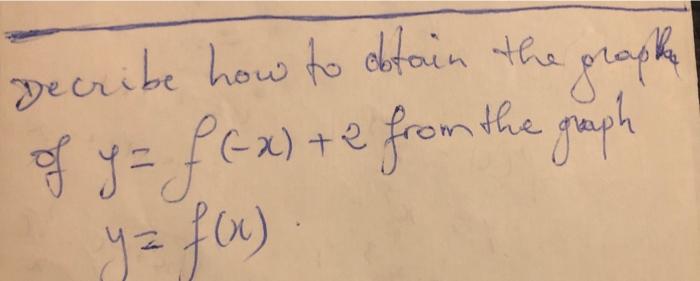 Decribe how to obtain the graph
of y = f(-x) + 2 from the graph
y = f(x).